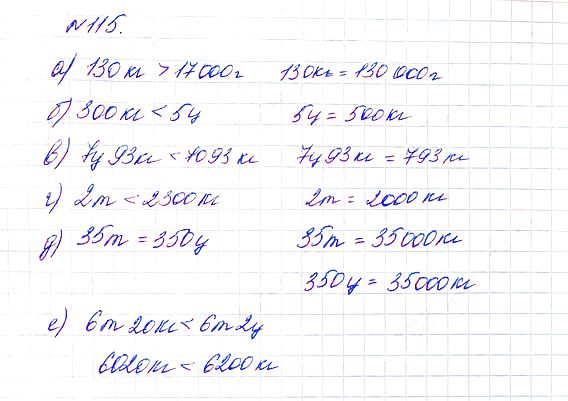 №115.
а) 130 кг > 17000г 130кг = 130 000г
б) 300кг < 5ц 5ц = 500кг
в) 7ц 93кг < 7093 кг 7ц 93кг = 793 кг
г) 2т < 2300кг 2т = 2000кг
д) 35т = 350ц 35т = 35000кг
350ц = 35000кг
е) 6т 20кг < 6т 2ц
6020кг < 6200кг